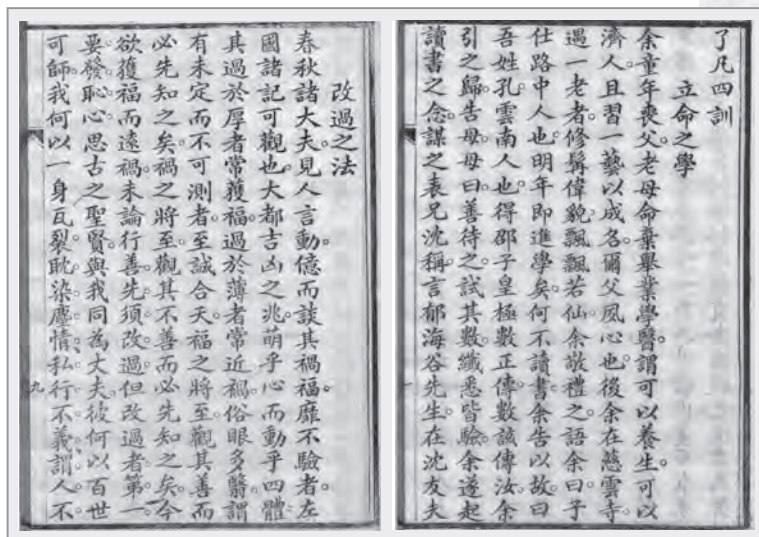 了凡四訓
立命之學
余童年喪父。老母命棄舉業學醫。謂可以養生。可以
濟人。且習一藝以成名。爾父夙心也。後余在慈雲寺。
遇一老者。修髯偉貌。飄飄若仙。余敬禮之。語余曰。子
仕路中人也。明年即進學矣。何不讀書。余告以故。曰
吾姓孔。雲南人也。得邵子皇極數正傳。數該傳汝。余
引之歸。告母。母曰。善待之。試其數。纖悉皆驗。余遂起
讀書之念。謀之表兄沈稱。言郁海谷先生。在沈友夫
一
改過之法
春秋諸大夫。見人言動。億而談其禍福。靡不驗者。左
國諸記可觀也。大都吉凶之兆。萌乎心而動乎四體。
其過於厚者常獲福。過於薄者常近禍。俗眼多翳。謂
有未定而不可測者。至誠合天。福之將至。觀其善而
必先知之矣。禍之將至。觀其不善而必先知之矣。今
欲獲福而遠禍。未論行善。先須改過。但改過者。第一
要發恥心。思古之聖賢。與我同為丈夫。彼何以百世
可師。我何以一身瓦裂。耽染塵情。私行不義。謂人不
九